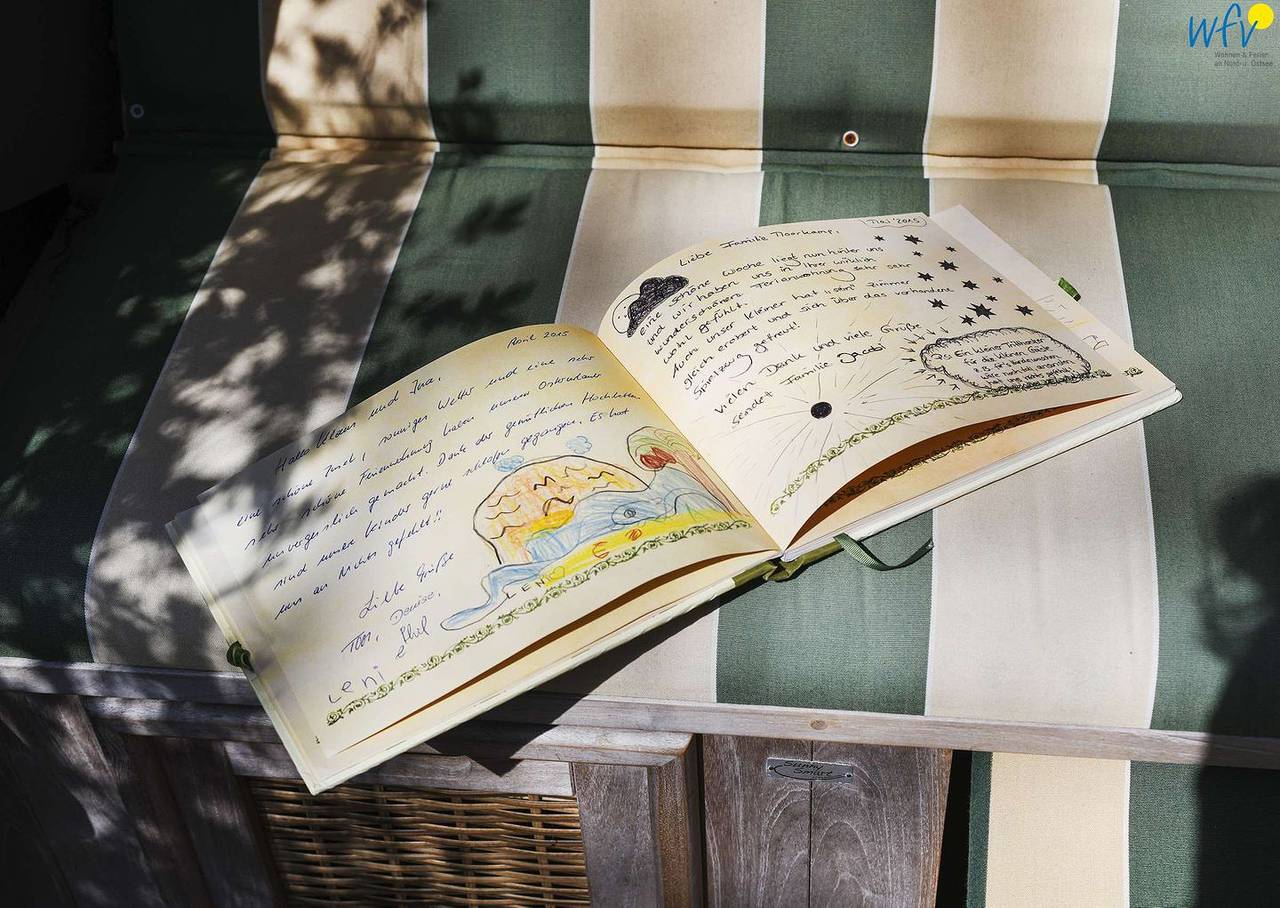 April 2015
Hallo Klaus und Ina,
eine schöne Insel, sonniges Wetter und eine sehr
sehr schöne Ferienwohnung haben unseren Osterurlaub
unvergesslich gemacht. Dank der gemütlichen Hochbetten
sind unsere Kinder gerne schlafen gegangen. Es hat
uns an Nichts gefehlt!!
Liebe Grüße
Denise,
Leni
LENI
Mai '2015
Liebe Familie Moorkamp,
eine schöne Woche liegt nun hinter uns
und wir haben uns in Ihrer wirklich
wunderschönen Ferienwohnung sehr sehr
wohl gefühlt.
Auch unser Kleiner hat "sein" Zimmer
gleich erobert und sich über das vorhandene
Spielzeug gefreut!
Vielen Dank und viele Grüße
sendet Familie Jacobi
Ein kleiner Tritthocker
für die kleinen Gäste
z.B. für's Händewaschen
wäre
wfv
Wohnen & Ferien
an Nord-u. Ostsee
Sunny Smart